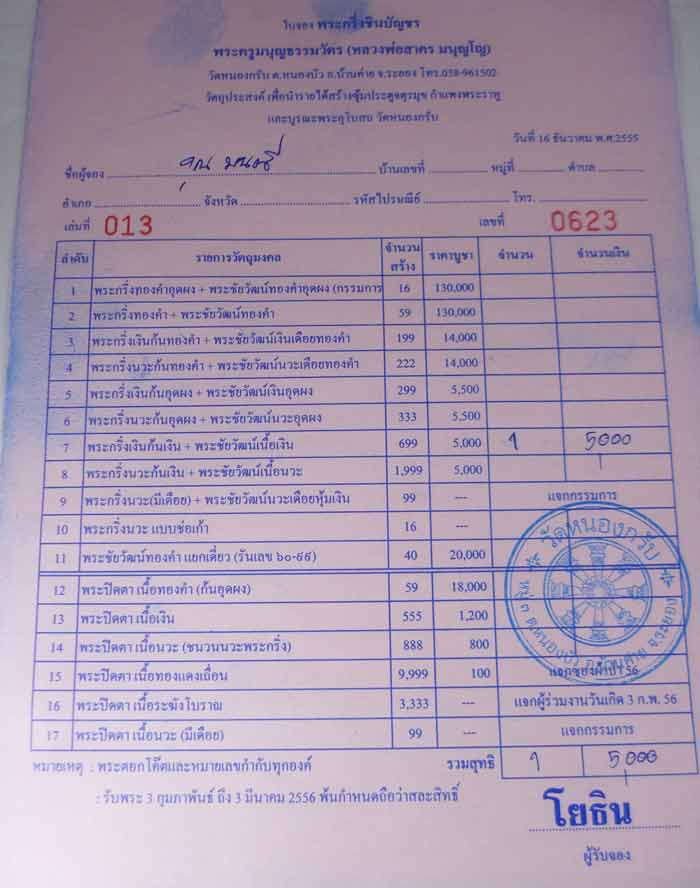 ใบจอง พระกริ่งชินบัญชร
พระครูมนุญธรรมวัตร (หลวงพ่อสาคร มนุญโญ)
วัดหนองกรับ ต.หนองบัว อ.บ้านค่าย จ.ระยอง โทร.038-961502
วัตถุประสงค์ เพื่อนำรายได้สร้างซุ้มประตูจตุรมุข กำแพงพระธาตุ
และบูรณะพระอุโบสถ วัดหนองกรับ
วันที่ 16 ธันวาคม พ.ศ.2555
ชื่อผู้จอง คุณ มนตรี บ้านเลขที่ หมู่ที่ ตำบล
อำเภอ จังหวัด รหัสไปรษณีย์ โทร.
เล่มที่ 013 เลขที่ 0623
ลำดับ รายการวัตถุมงคล จำนวนสร้าง ราคาบูชา จำนวน จำนวนเงิน
1 พระกริ่งทองคำอุดผง + พระชัยวัฒน์ทองคำอุดผง (กรรมการ 16 130,000
2 พระกริ่งทองคำ + พระชัยวัฒน์ทองคำ 59 130,000
3 พระกริ่งเงินก้นทองคำ + พระชัยวัฒน์เงินเดือยทองคำ 199 14,000
4 พระกริ่งนวะก้นทองคำ + พระชัยวัฒน์นวะเดือยทองคำ 222 14,000
5 พระกริ่งเงินก้นอุดผง + พระชัยวัฒน์เงินอุดผง 299 5,500
6 พระกริ่งนวะก้นอุดผง + พระชัยวัฒน์นวะอุดผง 333 5,500
7 พระกริ่งเงินก้นเงิน + พระชัยวัฒน์เนื้อเงิน 699 5,000 1 5000
8 พระกริ่งนวะก้นเงิน + พระชัยวัฒน์เนื้อนวะ 1,999 5,000
9 พระกริ่งนวะ(มีเดือย) + พระชัยวัฒน์นวะเดือยหุ้มเงิน 99 --- แจกกรรมการ
10 พระกริ่งนวะ แบบช่อเก้า 16 ---
11 พระชัยวัฒน์ทองคำ แยกเดี่ยว (รันเลข ๖๐-๙๙) 40 20,000
12 พระปิดตา เนื้อทองคำ (ก้นอุดผง) 59 18,000
13 พระปิดตา เนื้อเงิน 555 1,200
14 พระปิดตา เนื้อนวะ (ชนวนนวะพระกริ่ง) 888 800
15 พระปิดตา เนื้อทองแดงเถื่อน 9,999 100 แจกซองผ้าป่า 56
16 พระปิดตา เนื้อระฆังโบราณ 3,333 --- แจกผู้ร่วมงานวันเกิด 3 ก.พ. 56
17 พระปิดตา เนื้อนวะ (มีเดือย) 99 --- แจกกรรมการ
วัดหนองกรับ
ต.หนองบัว อ.บ้านค่าย จ.ระยอง
หมายเหตุ : พระตอกโค๊ตและหมายเลขกำกับทุกองค์ รวมสุทธิ 1 5000
: รับพระ 3 กุมภาพันธ์ ถึง 3 มีนาคม 2556 พ้นกำหนดถือว่าสละสิทธิ์
โยธิน
ผู้รับจอง